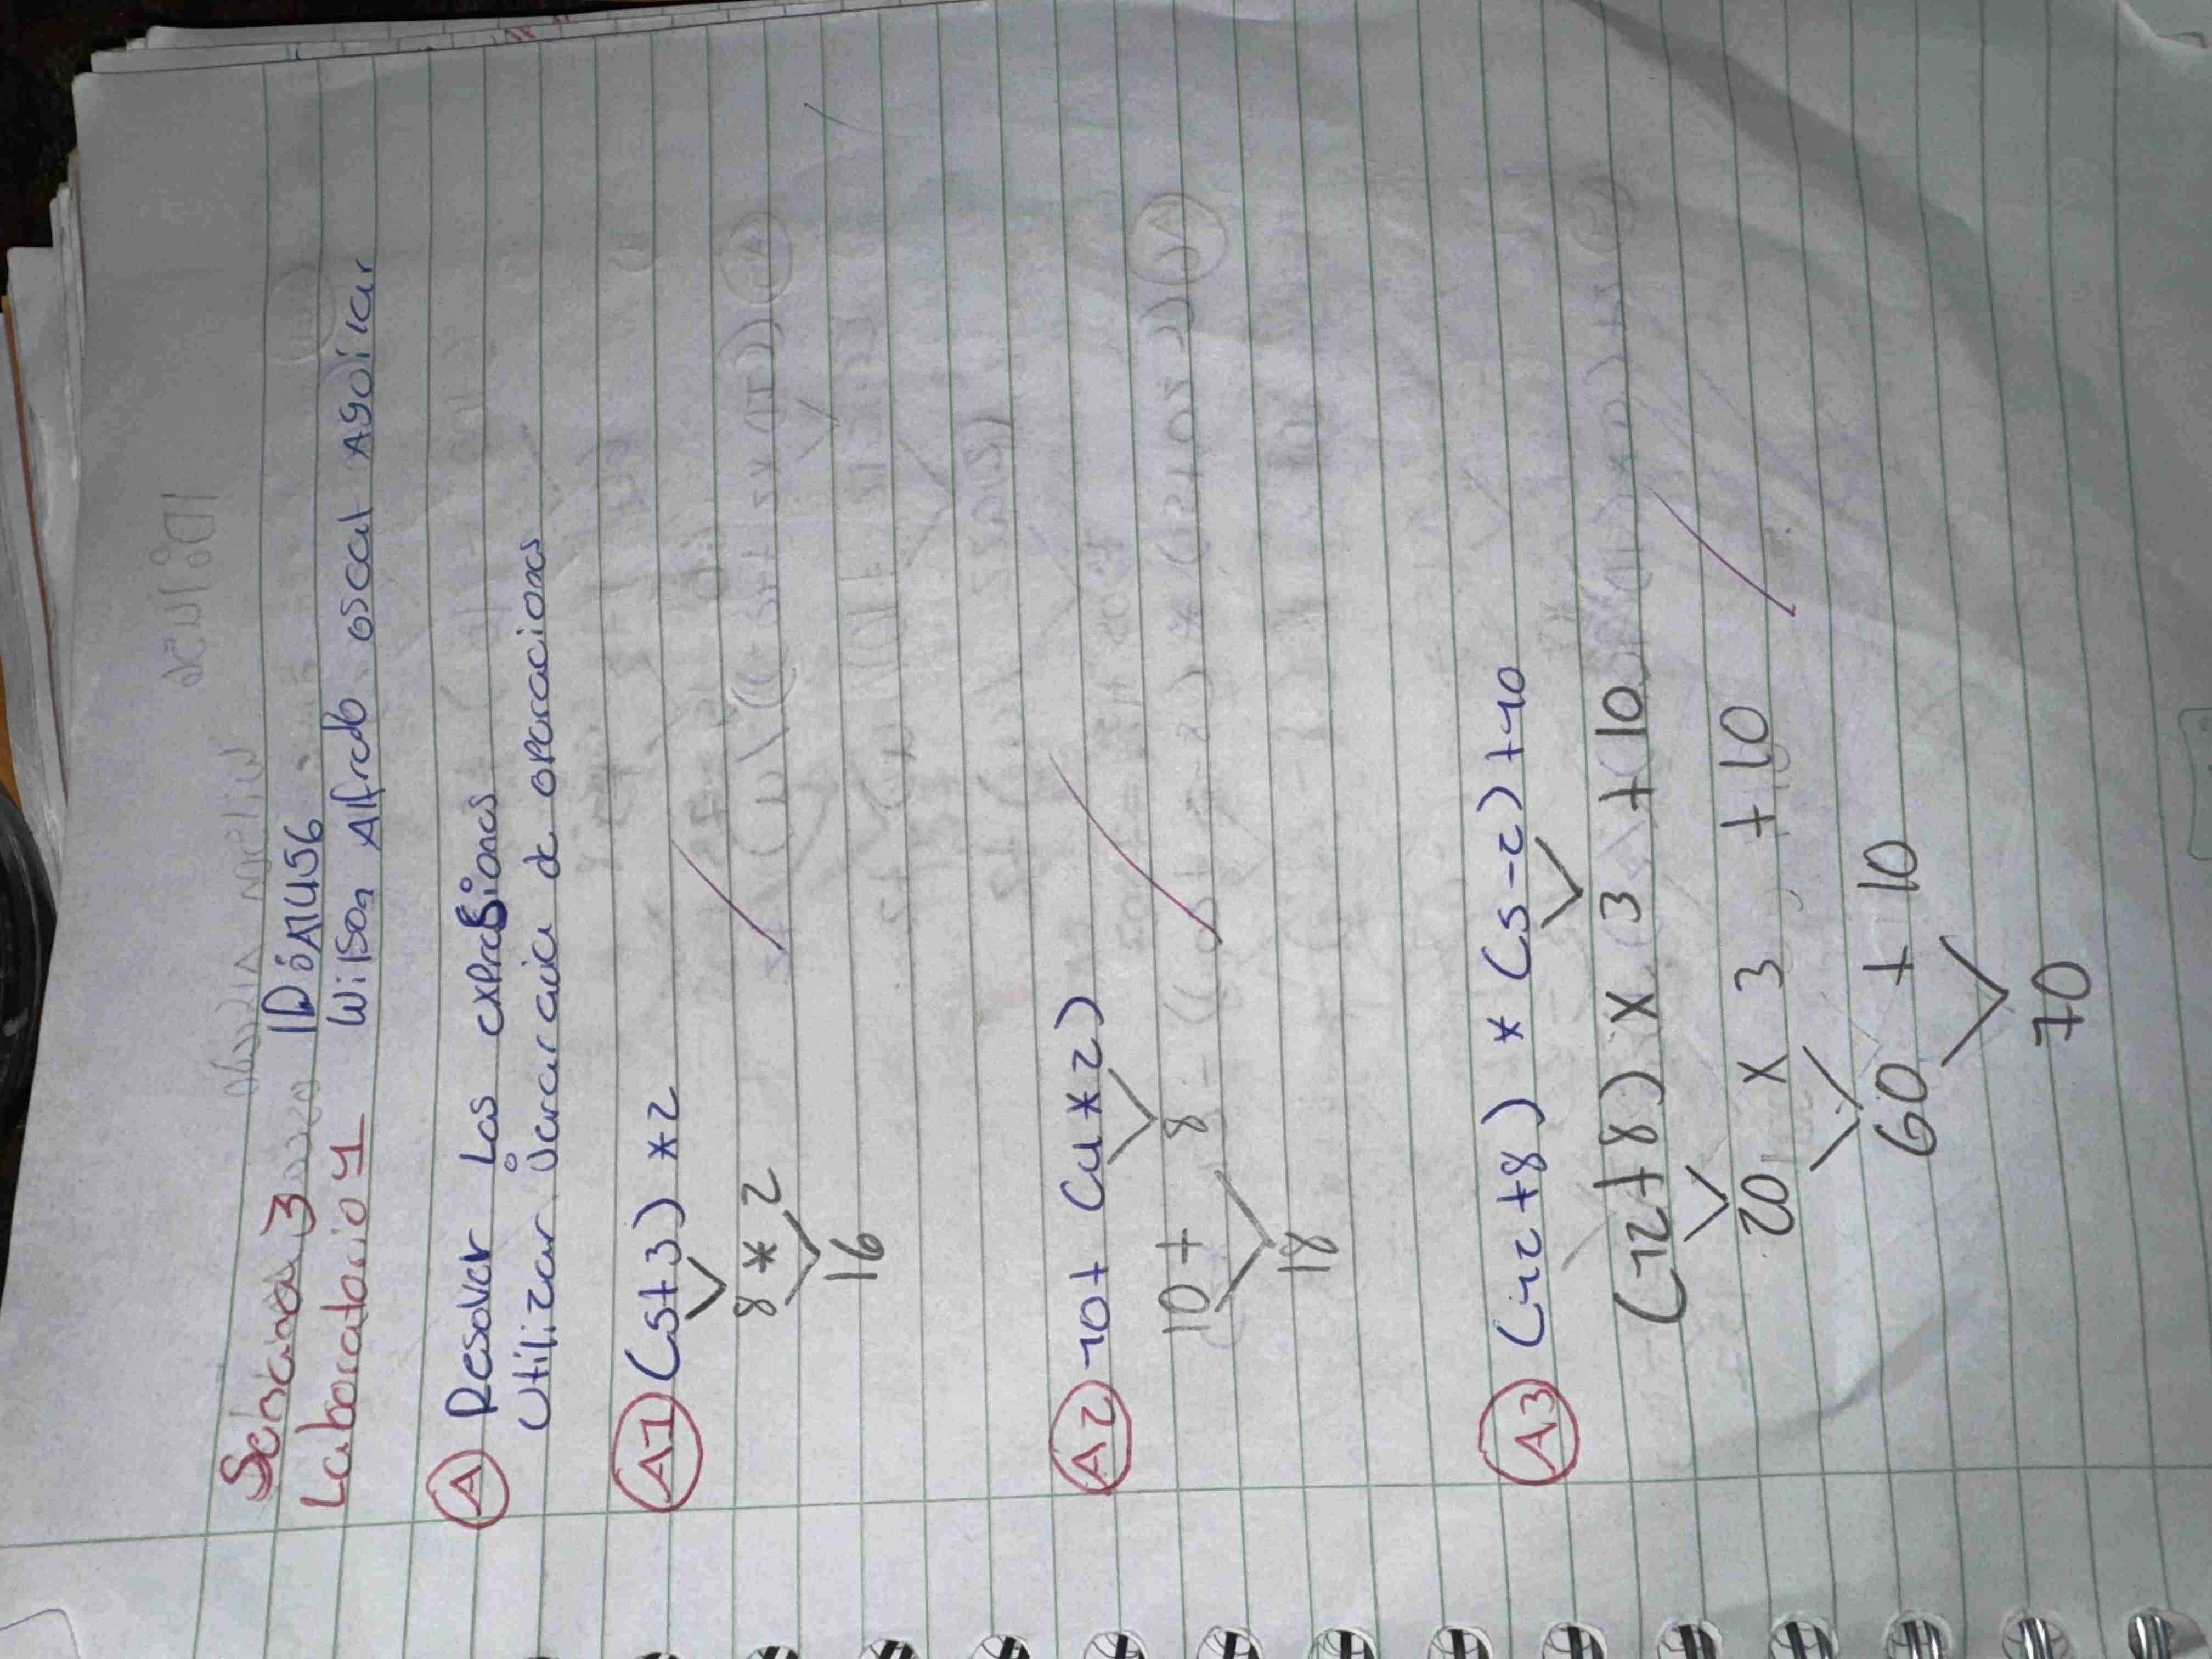 Semana 3
Laboratorio 1
ID: A1456
Wilson Alfredo oscal Agüilar
A Resolver Las expresiones
Utilizar Jerarquia de operaciones
A1 (5+3) *2
8 * 2
16
A2 10+ (4*2)
10 + 8
18
A3 (12+8) * (5-2)+10
(12+8) x 3 +10
20 x 3 + 10
60 + 10
70